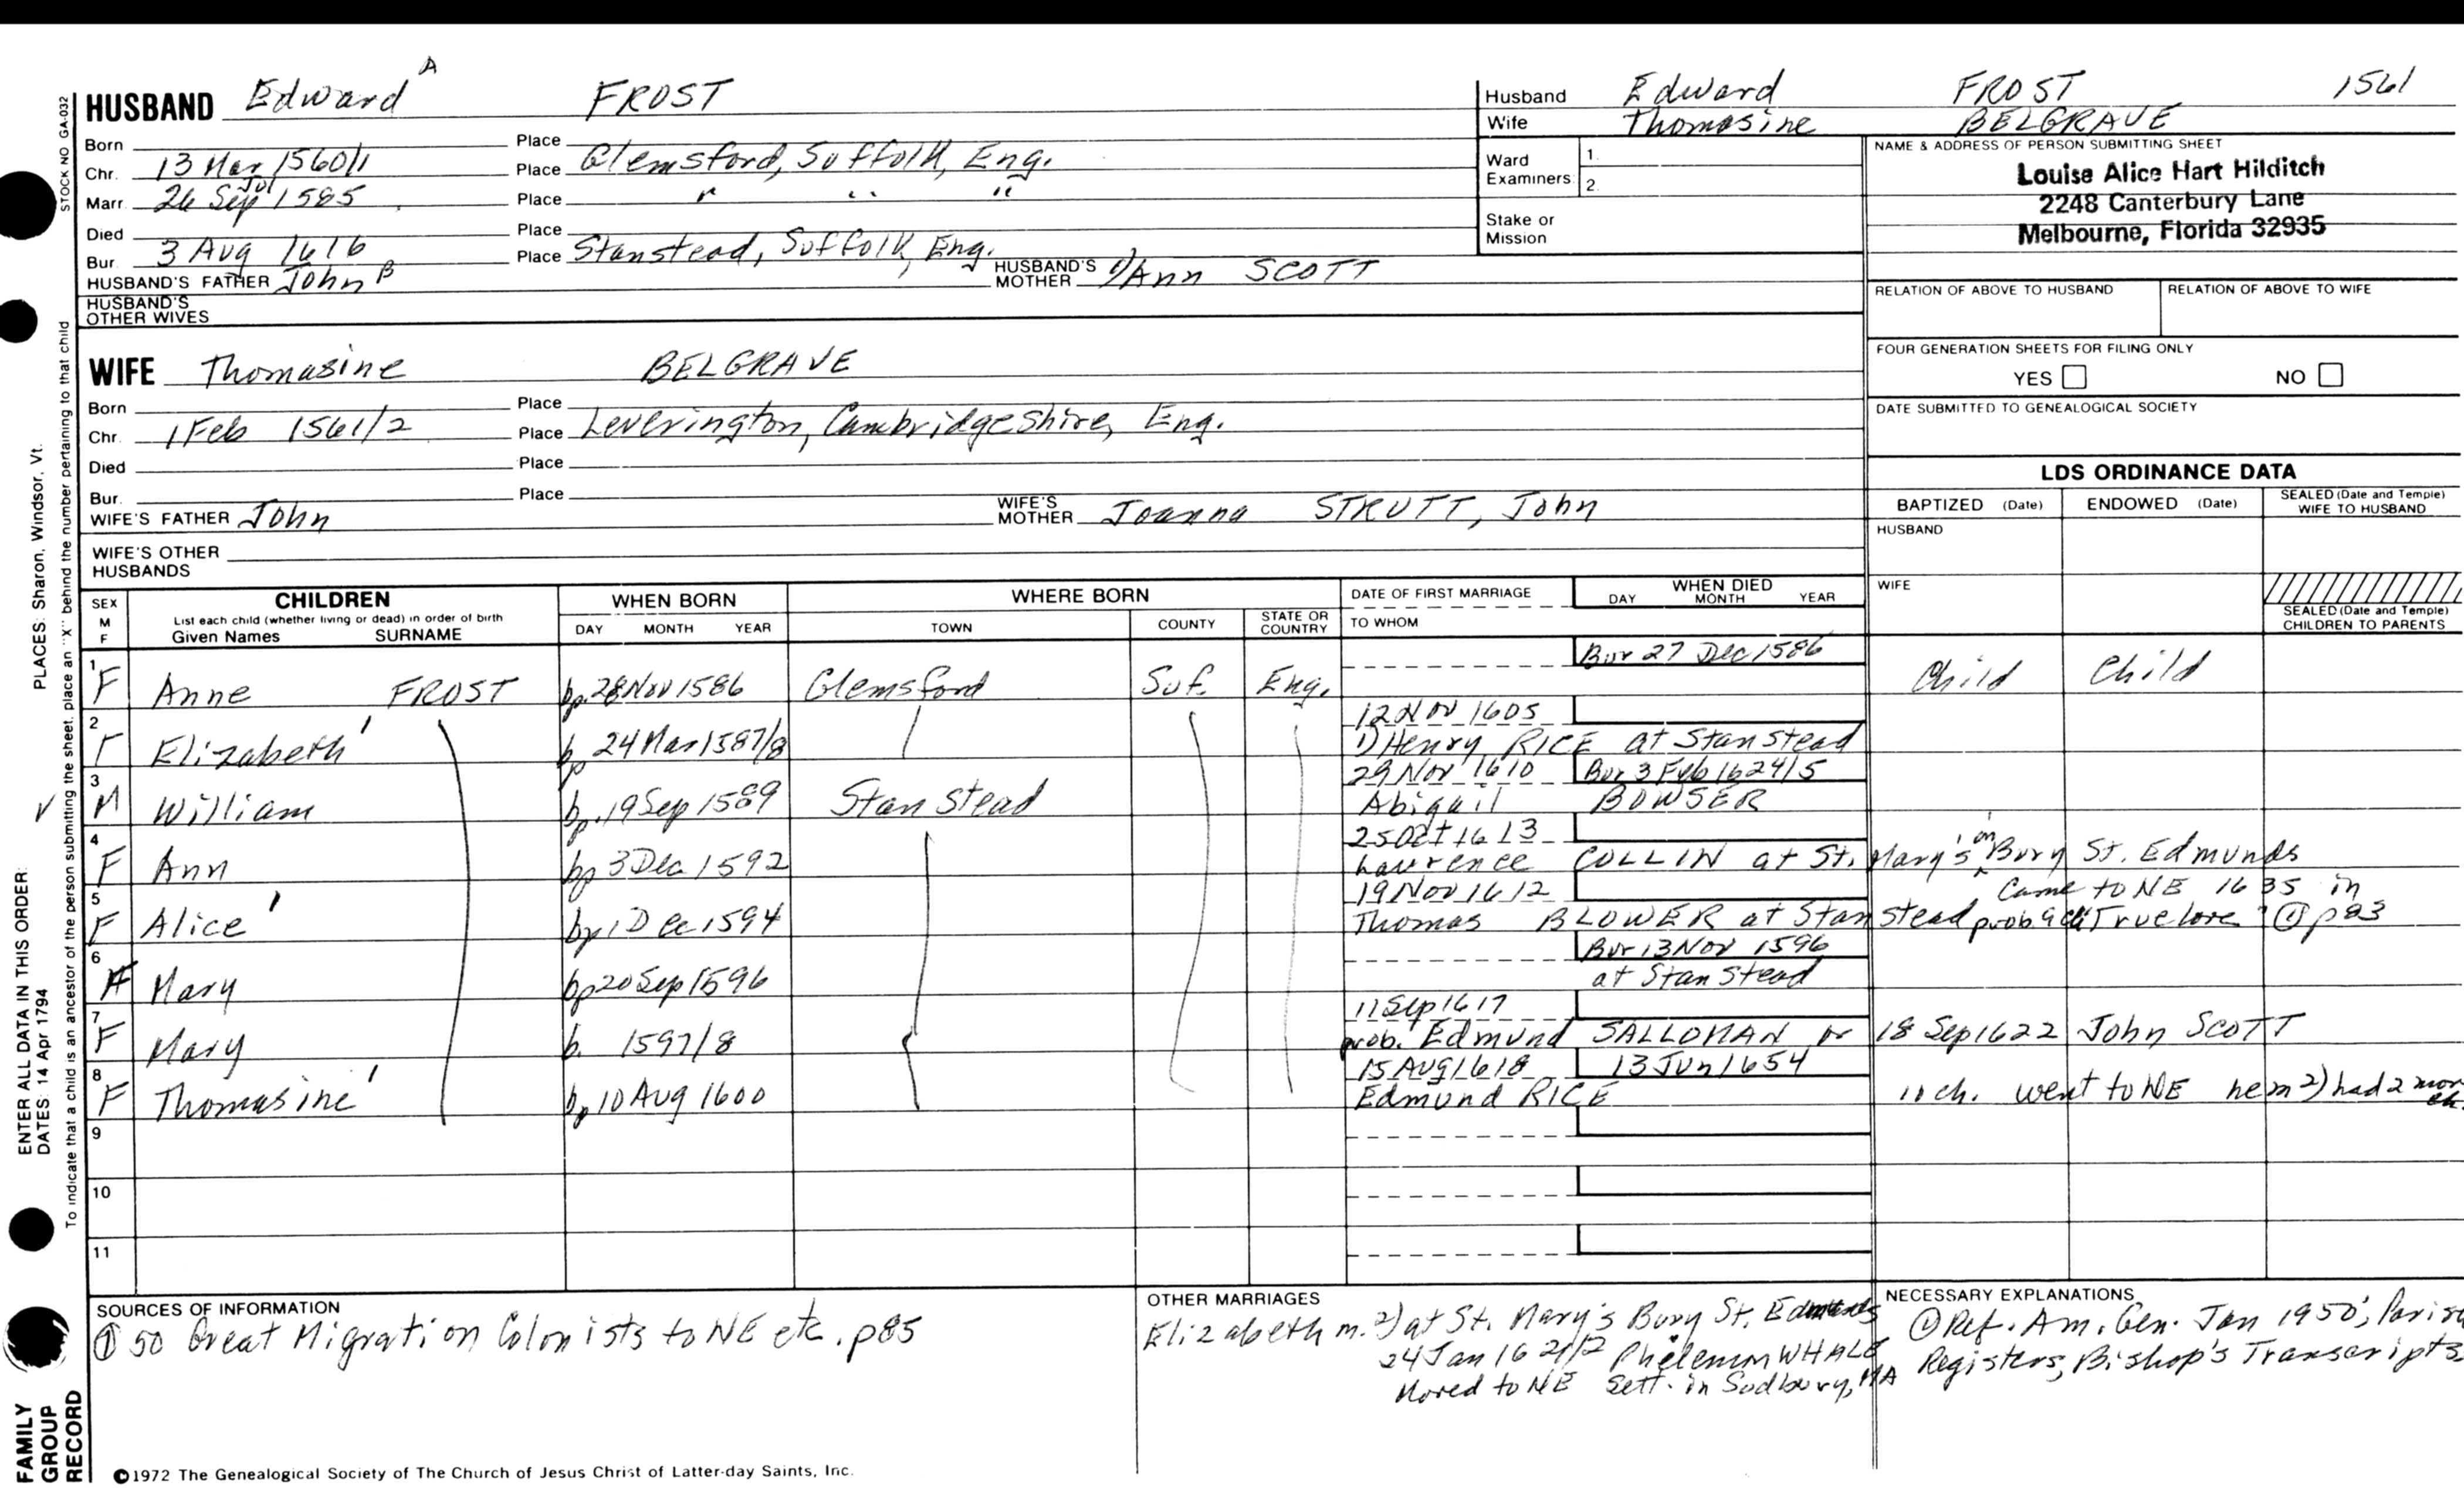 HUSBAND Edward A FROST
Born Place
Chr. 13 Mar 1560/1 Place Glemsford, Suffolk, Eng.
Jul
Marr. 26 Sep 1585 Place " " "
Died Place
Bur. 3 Aug 1616 Place Stanstead, Suffolk, Eng.
HUSBAND'S FATHER John B HUSBAND'S MOTHER 1) Ann SCOTT
HUSBAND'S OTHER WIVES
WIFE Thomasine BELGRAVE
Born Place
Chr. 1 Feb 1561/2 Place Leverington, Cambridgeshire, Eng.
Died Place
Bur. Place
WIFE'S FATHER John WIFE'S MOTHER Joanna STRUTT, John
WIFE'S OTHER HUSBANDS
Husband Edward FROST 1561
Wife Thomasine BELGRAVE
Ward Examiners: 1. 2.
Stake or Mission
NAME & ADDRESS OF PERSON SUBMITTING SHEET
Louise Alice Hart Hilditch
2248 Canterbury Lane
Melbourne, Florida 32935
RELATION OF ABOVE TO HUSBAND RELATION OF ABOVE TO WIFE
FOUR GENERATION SHEETS FOR FILING ONLY
YES NO
DATE SUBMITTED TO GENEALOGICAL SOCIETY
LDS ORDINANCE DATA
BAPTIZED (Date) ENDOWED (Date) SEALED (Date and Temple) WIFE TO HUSBAND
HUSBAND
WIFE
SEALED (Date and Temple) CHILDREN TO PARENTS
SEX M F
CHILDREN
List each child (whether living or dead) in order of birth
Given Names SURNAME
WHEN BORN
DAY MONTH YEAR
WHERE BORN
TOWN COUNTY STATE OR COUNTRY
DATE OF FIRST MARRIAGE
TO WHOM
WHEN DIED
DAY MONTH YEAR
1 Bur 27 Dec 1586
F Anne FROST bp. 28 Nov 1586 Glemsford Suf. Eng. Child Child
2 12 Nov 1605
F Elizabeth bp 24 Mar 1587/8 1) Henry RICE at Stanstead
3 29 Nov 1610 Bur 3 Feb 1624/5
M William bp. 19 Sep 1589 Stanstead Abigail BOWSER
4 25 Oct 1613
F Ann bp 3 Dec 1592 Lawrence COLLIN at St. Mary's in Bury St. Edmunds
5 19 Nov 1612 Came to NE 1635 in
F Alice bp 1 Dec 1594 Thomas BLOWER at Stanstead prob. "Truelove" ① p83
6 Bur 13 Nov 1596
F Mary bp 20 Sep 1596 at Stanstead
7 11 Sep 1617
F Mary b. 1597/8 prob. Edmund SALLOMAN or 18 Sep 1622 John SCOTT
8 15 AUG 1618 13 Jun 1654
F Thomasine bp 10 Aug 1600 Edmund RICE 11 ch. went to NE he m 2) had 2 mor ch.
9
10
11
SOURCES OF INFORMATION
① 50 Great Migration Colonists to NE etc. p85
OTHER MARRIAGES
Elizabeth m. 2) at St. Mary's Bury St. Edmunds
24 Jan 1621/2 Phelemon WHALE
Moved to NE sett. in Sudbury, MA
NECESSARY EXPLANATIONS
① Ref. Am. Gen. Jan 1950; Paris
Registers, Bishop's Transcripts
©1972 The Genealogical Society of The Church of Jesus Christ of Latter-day Saints, Inc.
STOCK NO GA-032
To indicate that a child is an ancestor of the person submitting the sheet, place an "X" behind the number pertaining to that child
ENTER ALL DATA IN THIS ORDER:
DATES: 14 Apr 1794
PLACES: Sharon, Windsor, Vt.
FAMILY
GROUP
RECORD